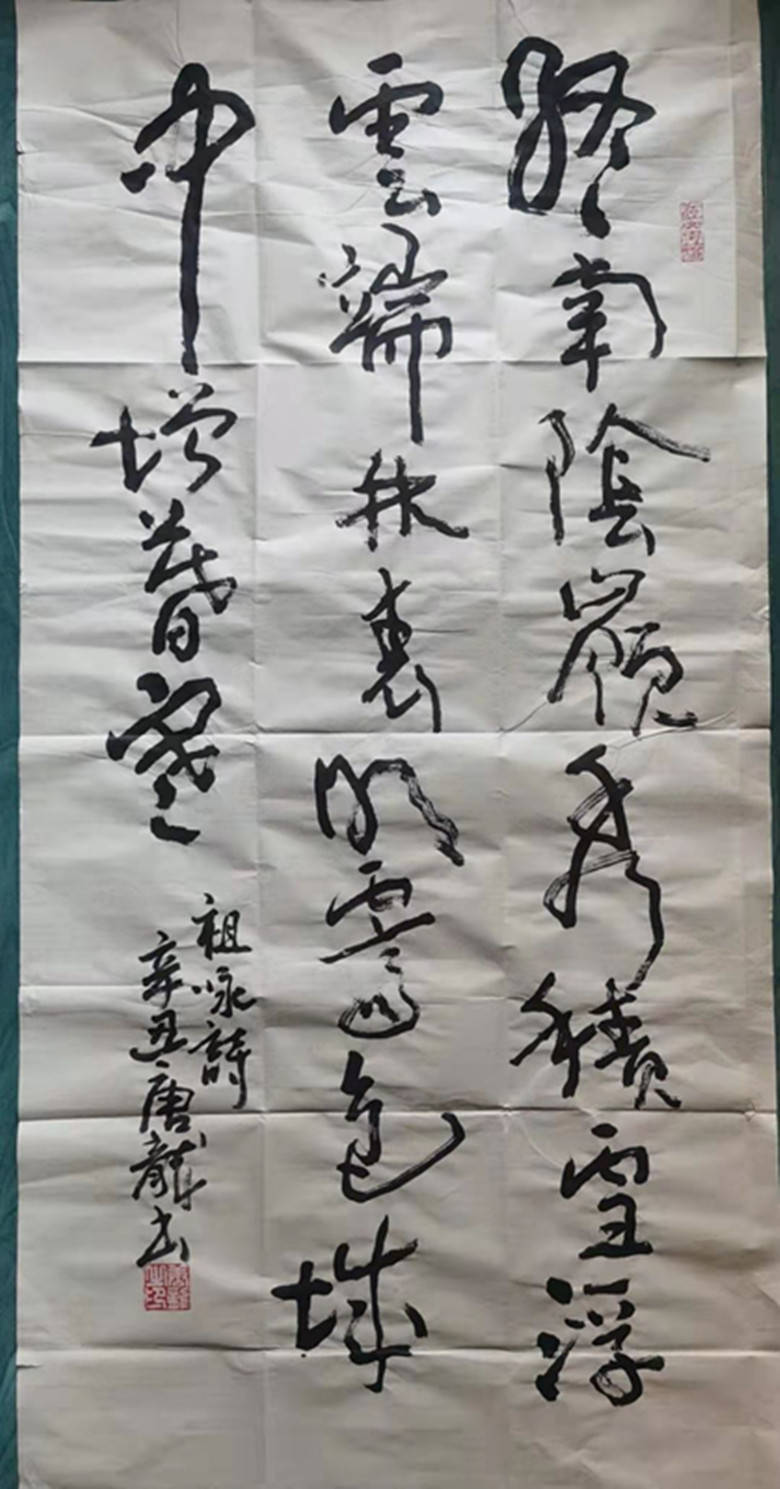 終南陰嶺秀積雪浮
雲端林表明霽色城
中增暮寒
祖咏詩
辛丑唐龍书